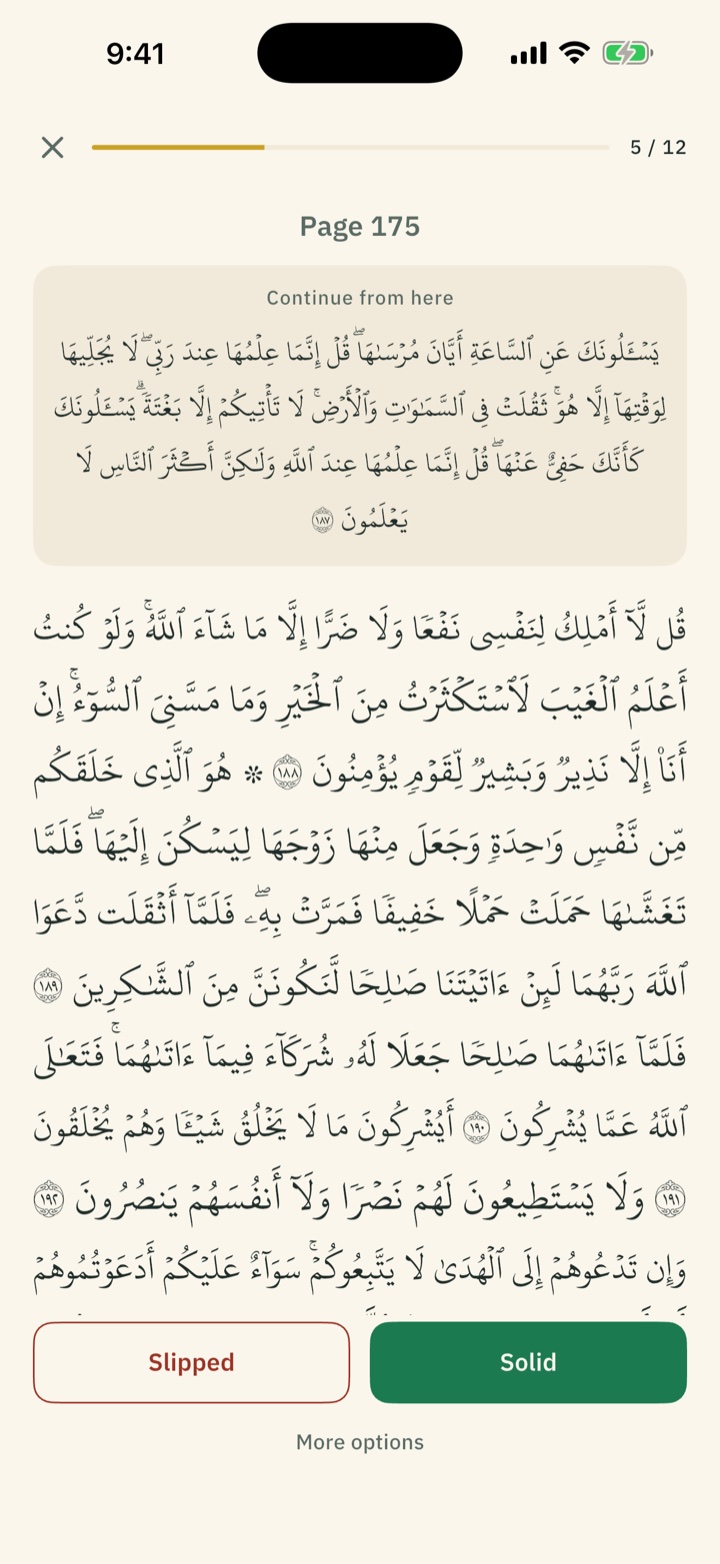 9:41
5 / 12
Page 175
Continue from here
يَسْـَٔلُونَكَ عَنِ ٱلسَّاعَةِ أَيَّانَ مُرْسَىٰهَا ۖ قُلْ إِنَّمَا عِلْمُهَا عِندَ رَبِّى ۖ لَا يُجَلِّيهَا
لِوَقْتِهَآ إِلَّا هُوَ ۚ ثَقُلَتْ فِى ٱلسَّمَـٰوَٰتِ وَٱلْأَرْضِ ۚ لَا تَأْتِيكُمْ إِلَّا بَغْتَةً ۗ يَسْـَٔلُونَكَ
كَأَنَّكَ حَفِىٌّ عَنْهَا ۖ قُلْ إِنَّمَا عِلْمُهَا عِندَ ٱللَّهِ وَلَـٰكِنَّ أَكْثَرَ ٱلنَّاسِ لَا
يَعْلَمُونَ ١٨٧
قُل لَّآ أَمْلِكُ لِنَفْسِى نَفْعًا وَلَا ضَرًّا إِلَّا مَا شَآءَ ٱللَّهُ ۚ وَلَوْ كُنتُ
أَعْلَمُ ٱلْغَيْبَ لَٱسْتَكْثَرْتُ مِنَ ٱلْخَيْرِ وَمَا مَسَّنِىَ ٱلسُّوٓءُ ۚ إِنْ
أَنَا۠ إِلَّا نَذِيرٌ وَبَشِيرٌ لِّقَوْمٍ يُؤْمِنُونَ ١٨٨ * هُوَ ٱلَّذِى خَلَقَكُم
مِّن نَّفْسٍ وَٰحِدَةٍ وَجَعَلَ مِنْهَا زَوْجَهَا لِيَسْكُنَ إِلَيْهَا ۖ فَلَمَّا
تَغَشَّىٰهَا حَمَلَتْ حَمْلًا خَفِيفًا فَمَرَّتْ بِهِۦ ۖ فَلَمَّآ أَثْقَلَت دَّعَوَا
ٱللَّهَ رَبَّهُمَا لَئِنْ ءَاتَيْتَنَا صَـٰلِحًا لَّنَكُونَنَّ مِنَ ٱلشَّـٰكِرِينَ ١٨٩
فَلَمَّآ ءَاتَىٰهُمَا صَـٰلِحًا جَعَلَا لَهُۥ شُرَكَآءَ فِيمَآ ءَاتَىٰهُمَا ۚ فَتَعَـٰلَى
ٱللَّهُ عَمَّا يُشْرِكُونَ ١٩٠ أَيُشْرِكُونَ مَا لَا يَخْلُقُ شَيْـًٔا وَهُمْ يُخْلَقُونَ
١٩١ وَلَا يَسْتَطِيعُونَ لَهُمْ نَصْرًا وَلَآ أَنفُسَهُمْ يَنصُرُونَ ١٩٢
وَإِن تَدْعُوهُمْ إِلَى ٱلْهُدَىٰ لَا يَتَّبِعُوكُمْ ۚ سَوَآءٌ عَلَيْكُمْ أَدَعَوْتُمُوهُمْ
Slipped
Solid
More options